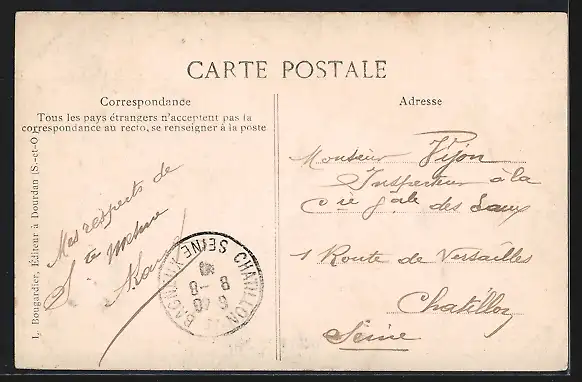 CARTE POSTALE
Correspondance
Tous les pays étrangers n'acceptent pas la
correspondance au recto, se renseigner à la poste
Mes respects de
Ste
Adresse
Monsieur Pijon
Inspecteur à la
Cie Gale des Eaux
1 Route de Versailles
Chatillon
Seine
CHATILLON
BAGNEUX SEINE
L. Bougardier, Éditeur à Dourdan (S.-et-O.)